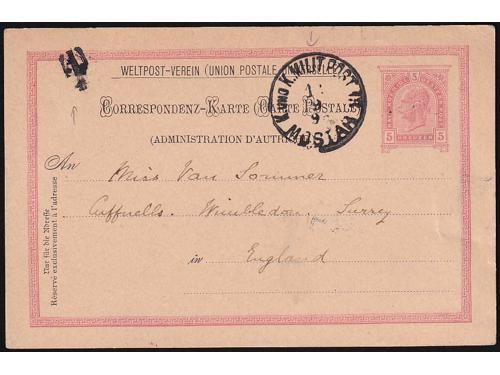 WELTPOST-VEREIN (UNION POSTALE UNIVERSELLE)
CORRESPONDENZ-KARTE (CARTE POSTALE)
(ADMINISTRATION D'AUTRICHE)
K. UND K. MILIT. POST
MOSTAR
5
5 5
KREUZER
An
Miss Van Sommer
Cuffnells. Wimbledon. Surrey
in England
Nur für die Adresse
Réservé exclusivement à l'adresse